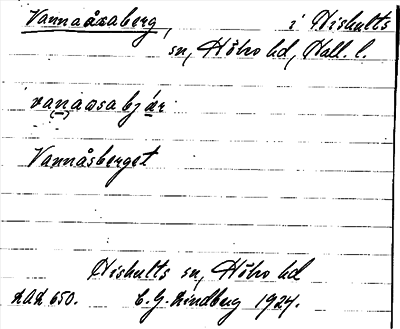 Vannaåsaberg, i Hishults
sn, Höks hd, Hall. l.
vanaosabjär
Vannåsberget
Hishults sn, Höks hd
AUA 650. C. G. Lindberg 1924.